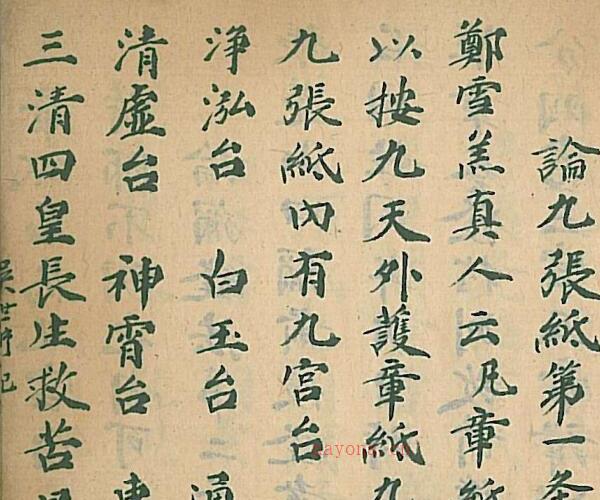 論九張紙第一条
鄭雪羔真人云凡章紙
以按九天外護章紙九
九張紙內有九宮台
浄泓台 白玉台
清虛台 神霄台
三清四皇長生救苦